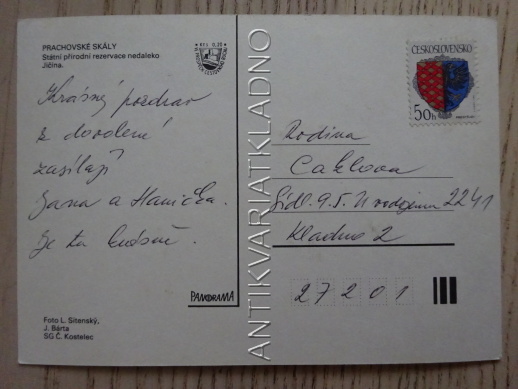 PRACHOVSKÉ SKÁLY
Státní přírodní rezervace nedaleko
Jičína.
Krásný pozdrav
z dovolené
zasílají
Jana a Hanička.
Je tu krásně.
Foto L. Sitenský,
J. Bárta
SG Č. Kostelec
PANORAMA
ANTIKVARIATKLADNO
ČESKOSLOVENSKO
50h
Rodina
Caklova
Sídl. 9.5. U vodojemu 2241
Kladno 2
27201